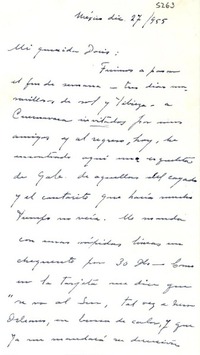 5263
México dic. 27/955
Mi querida Doris:
Fuimos a pasar
el fin de semana - tres días ma
ravillosos de sol y - a
Cuernavaca invitados por unos
amigos y al regreso, hoy, he
encontrado aquí una
de Gala. de aquellas del cayado
y el cantarito que hacía mucho
tiempo no veía. Me mandan
con unas rápidas líneas un
chequecito por 30 Dls. Como
en la tarjeta me dice que
"se va al Sur, tal vez a New
Orleans, en busca de calor, y que
ya me mandará su dirección